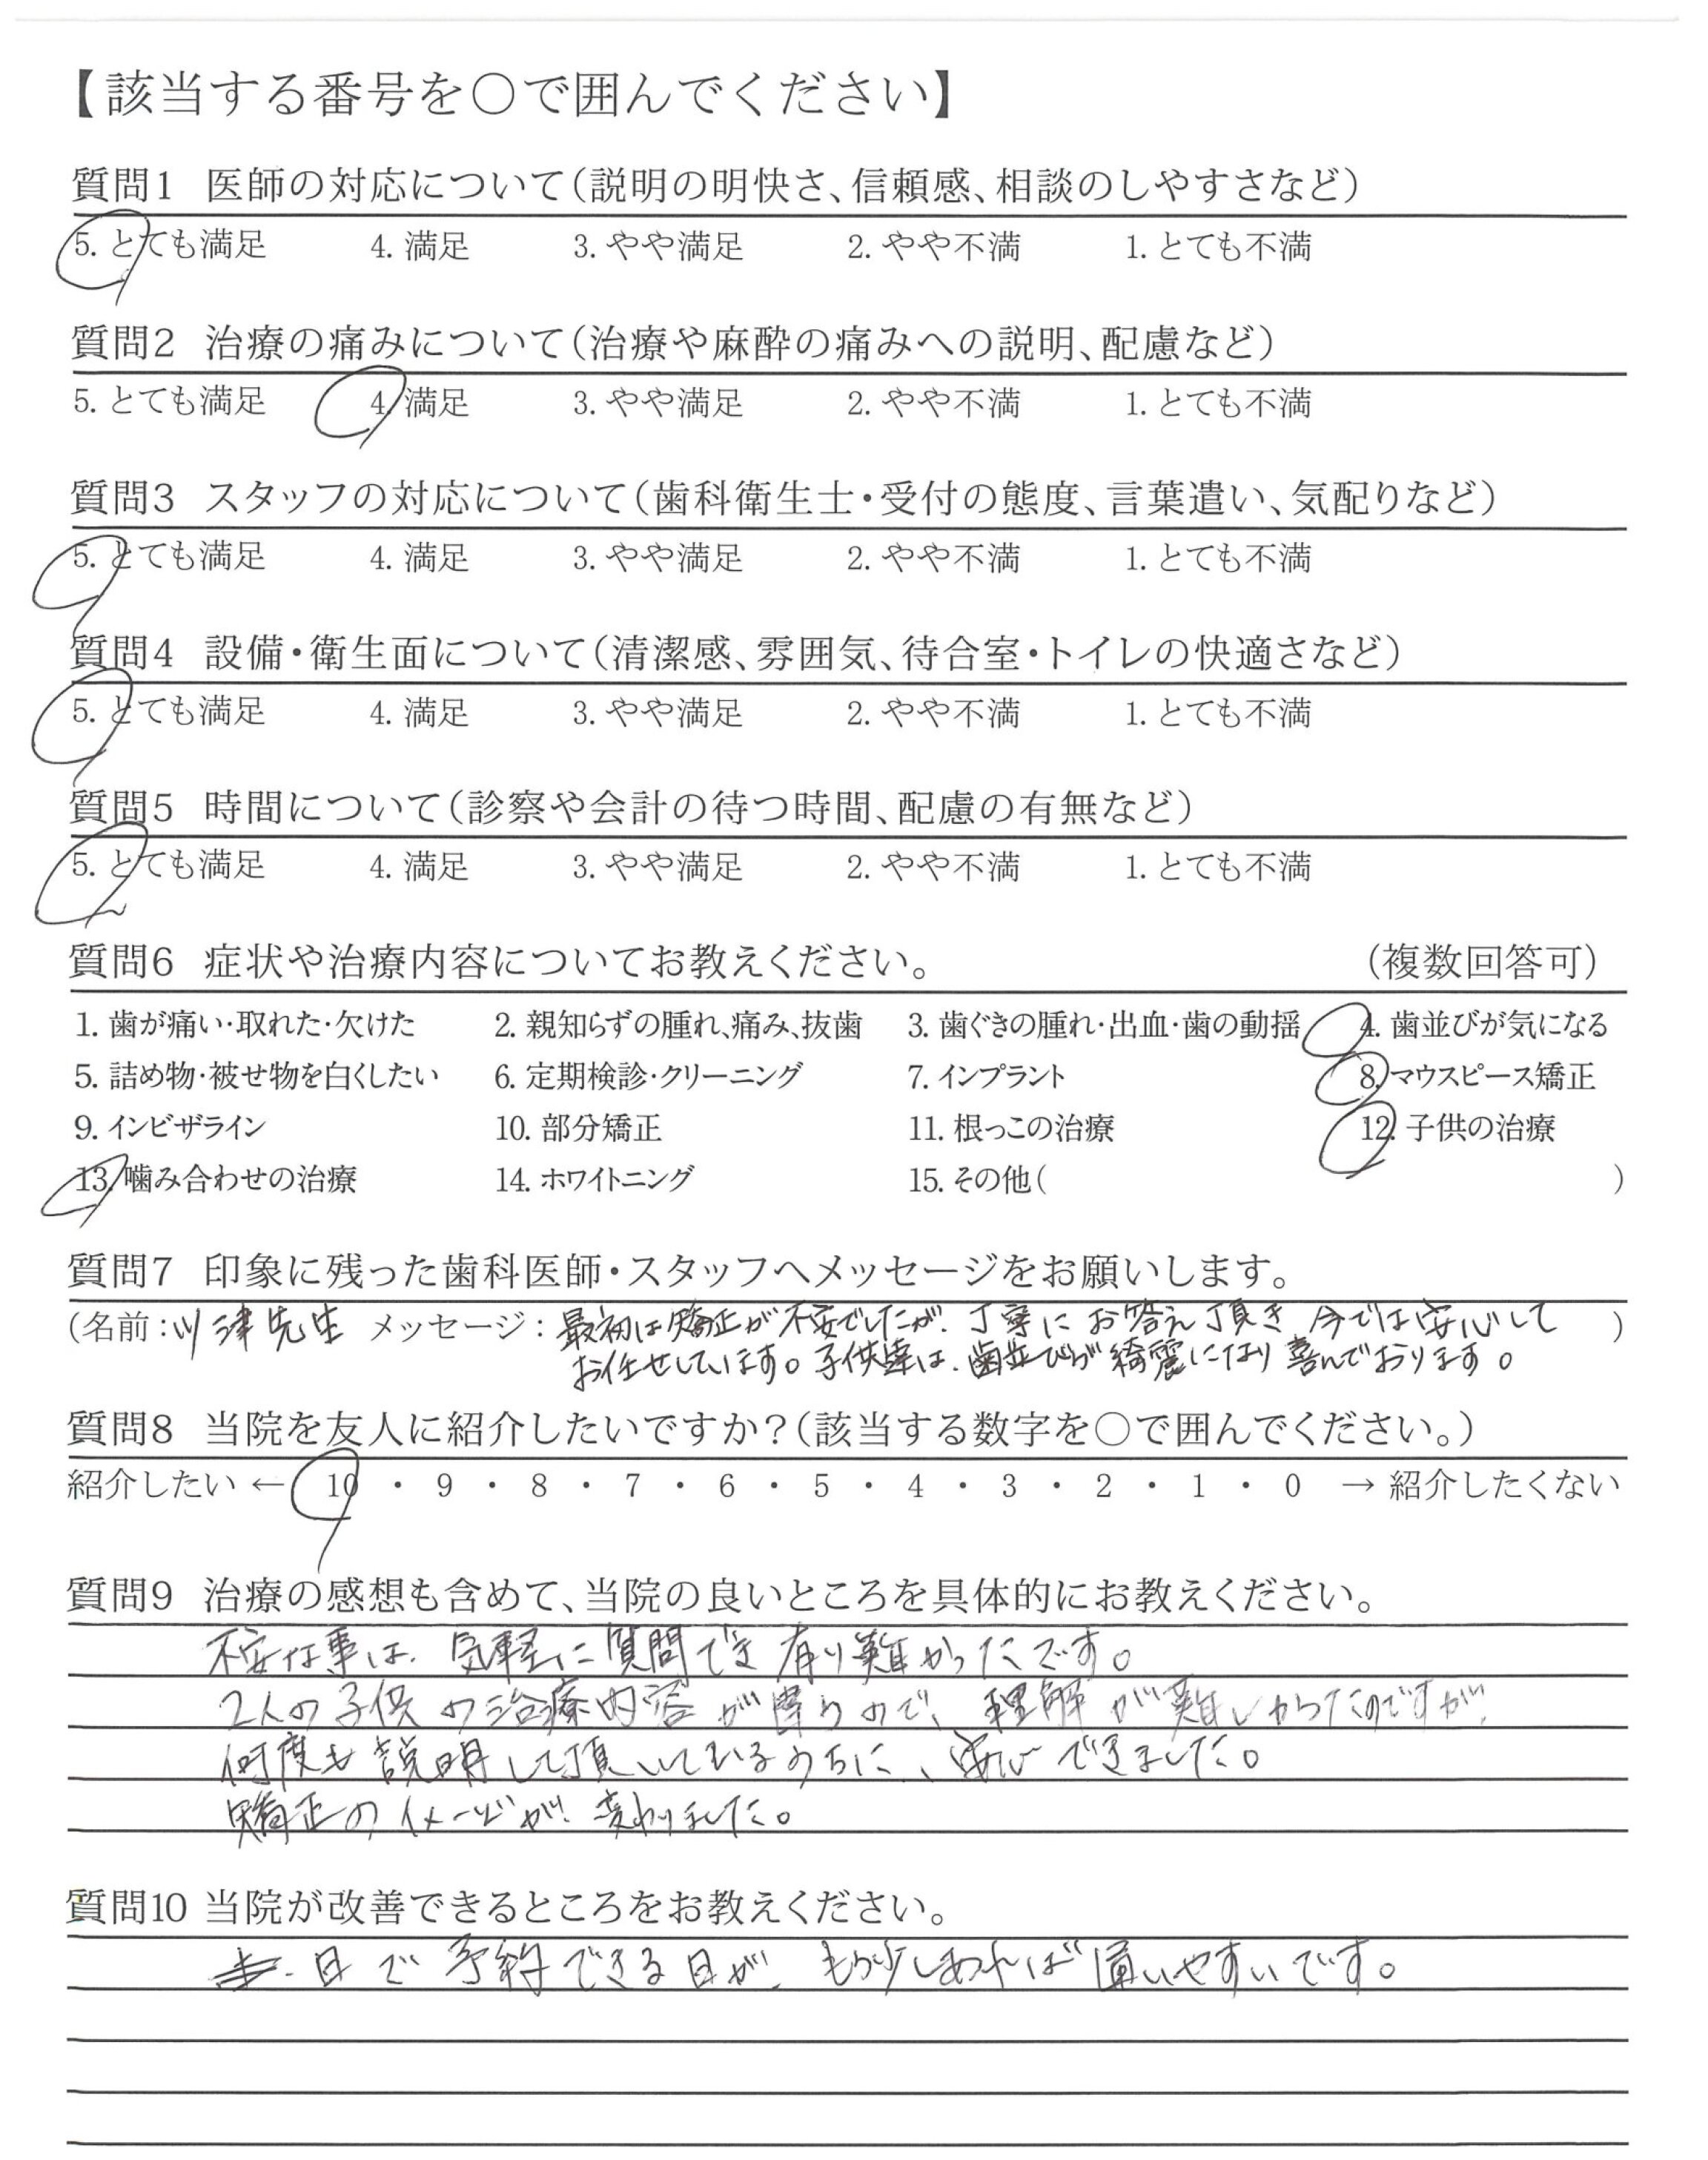 【該当する番号を〇で囲んでください】
質問1 医師の対応について(説明の明快さ、信頼感、相談のしやすさなど)
5. とても満足 4. 満足 3. やや満足 2. やや不満 1. とても不満
質問2 治療の痛みについて(治療や麻酔の痛みへの説明、配慮など)
5. とても満足 4. 満足 3. やや満足 2. やや不満 1. とても不満
質問3 スタッフの対応について(歯科衛生士・受付の態度、言葉遣い、気配りなど)
5. とても満足 4. 満足 3. やや満足 2. やや不満 1. とても不満
質問4 設備・衛生面について(清潔感、雰囲気、待合室・トイレの快適さなど)
5. とても満足 4. 満足 3. やや満足 2. やや不満 1. とても不満
質問5 時間について(診察や会計の待つ時間、配慮の有無など)
5. とても満足 4. 満足 3. やや満足 2. やや不満 1. とても不満
質問6 症状や治療内容についてお教えください。 (複数回答可)
1. 歯が痛い・取れた・欠けた 2. 親知らずの腫れ、痛み、抜歯 3. 歯ぐきの腫れ・出血・歯の動揺 4. 歯並びが気になる
5. 詰め物・被せ物を白くしたい 6. 定期検診・クリーニング 7. インプラント 8. マウスピース矯正
9. インビザライン 10. 部分矯正 11. 根っこの治療 12. 子供の治療
13. 噛み合わせの治療 14. ホワイトニング 15. その他( )
質問7 印象に残った歯科医師・スタッフへメッセージをお願いします。
(名前:川津先生 メッセージ:最初は矯正が不安でしたが、丁寧にお答え頂き 今では安心して )
お任せしています。子供達は、歯並びが綺麗になり喜んでおります。
質問8 当院を友人に紹介したいですか?(該当する数字を〇で囲んでください。)
紹介したい ← 10 ・ 9 ・ 8 ・ 7 ・ 6 ・ 5 ・ 4 ・ 3 ・ 2 ・ 1 ・ 0 → 紹介したくない
質問9 治療の感想も含めて、当院の良いところを具体的にお教えください。
不安な事は、気軽に質問でき 有り難かったです。
2人の子供の治療内容が違うので、理解が難しかったのですが、
何度も説明して頂いているうちに、安心できました。
矯正のイメージが、変わりました。
質問10 当院が改善できるところをお教えください。
日で予約できる日が、もう少しあれば通いやすいです。